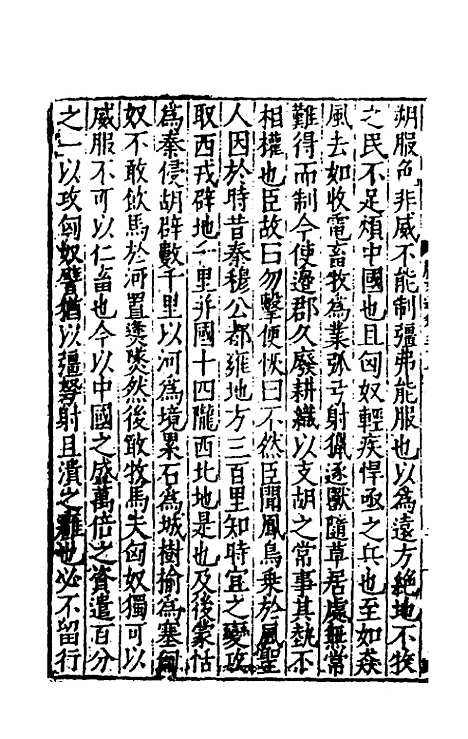 朔服色非威不能制彊弗能服也以為遠方絶地不牧
之民不足煩中國也且匈奴輕疾悍亟之兵也至如猋
風去如收電畜牧為業弧弓射獵逐獸隨草居處無常
難得而制今使邊郡久廢耕織以支胡之常事其勢不
相權也臣故曰勿擊便恢曰不然臣聞鳳鳥乗於風聖
人因於時昔秦穆公都雍地方三百里知時冝之變攻
取西戎辟地千里并國十四隴西北地是也及後蒙恬
為秦侵胡辟數千里以河為境累石為城樹榆為塞匈
奴不敢飲馬於河置㷭然後敢牧馬夫匈奴獨可以
威服不可以仁畜也今以中國之盛萬倍之資遣百分
之一以攻匈奴譬猶以彊弩射且潰之也必不留行